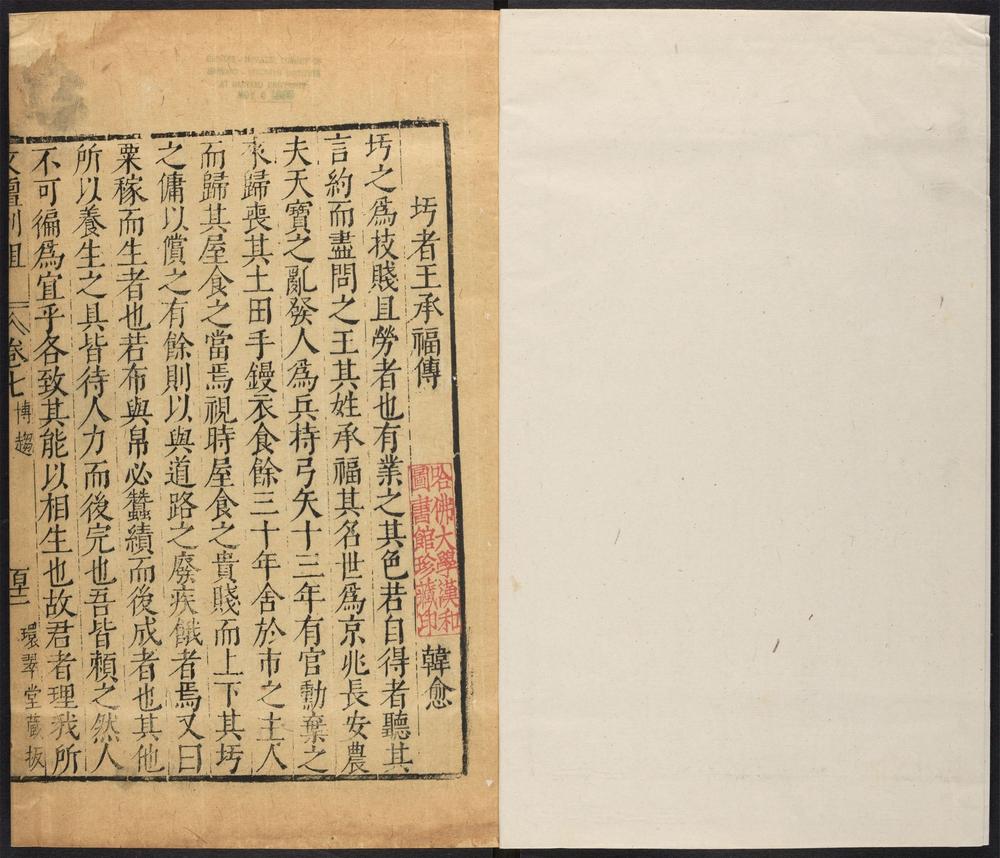 圬者王承福傳
韓愈
哈佛大學漢和
圖書館珍藏印
圬之爲技賤且勞者也有業之其色若自得者聽其
言約而盡問之王其姓承福其名世爲京兆長安農
夫天寶之亂發人爲兵持弓矢十三年有官勳棄之
來歸喪其土田手鏝衣食餘三十年舍於市之主人
而歸其屋食之當焉視時屋食之貴賤而上下其圬
之傭以償之有餘則以與道路之廢疾餓者焉又曰
粟稼而生者也若布與帛必蠶績而後成者也其他
所以養生之具皆待人力而後完也吾皆賴之然人
不可徧爲宜乎各致其能以相生也故君者理我所
文壇列俎
卷七
博趨
環翠堂藏板